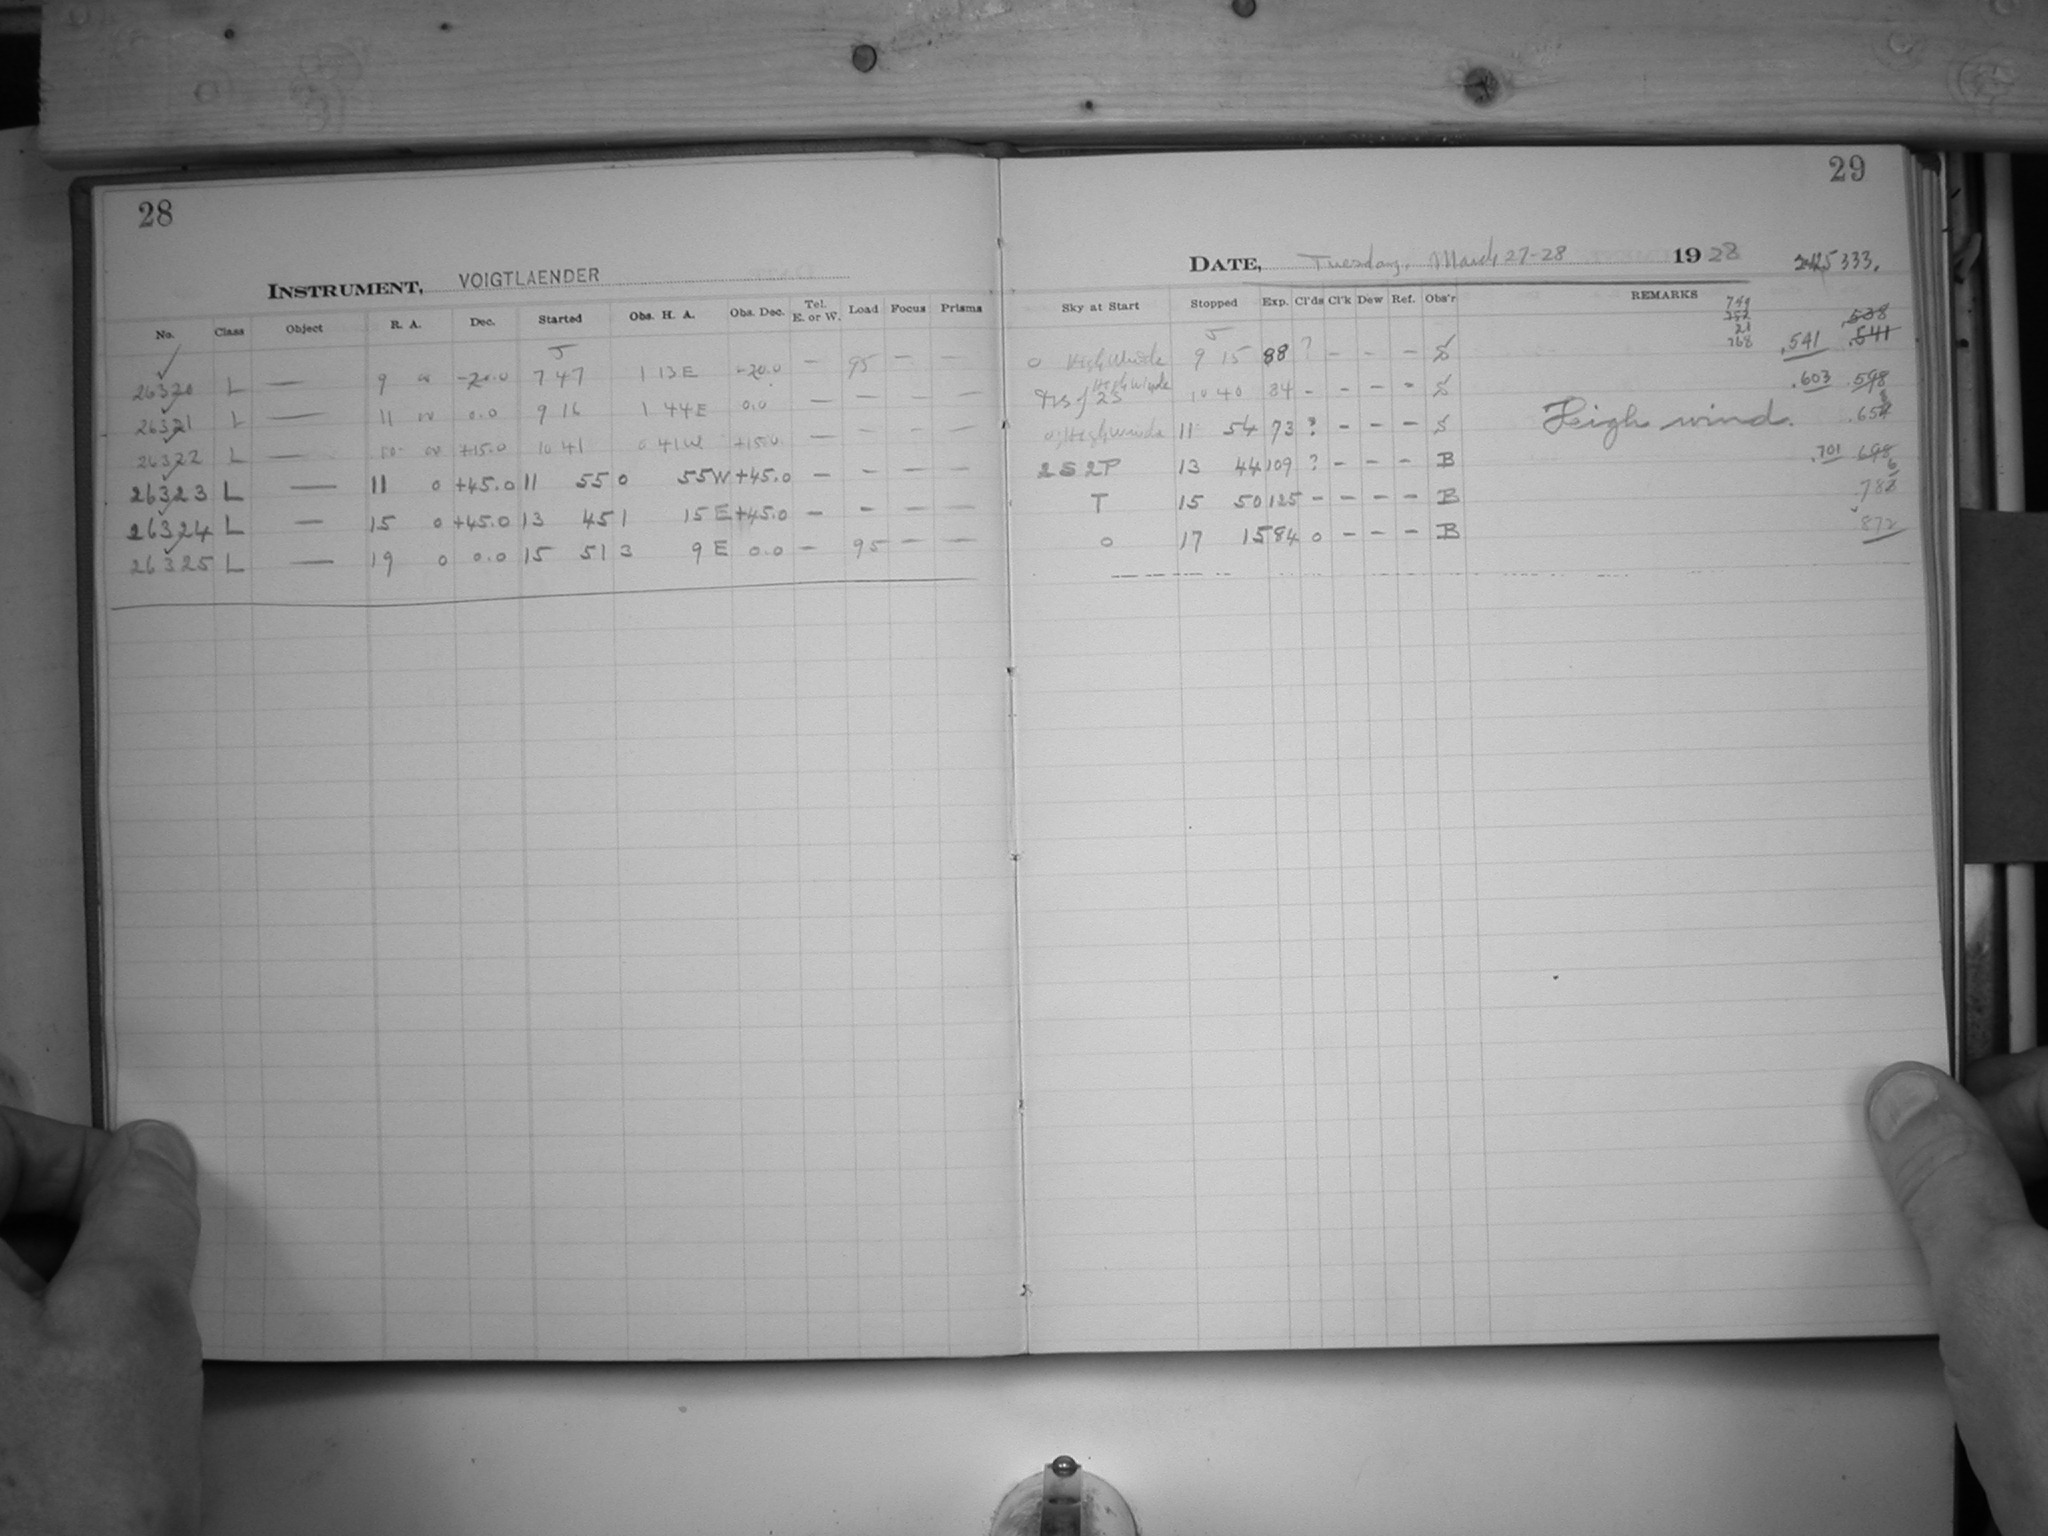 28
INSTRUMENT, VOIGTLAENDER
No. Class Object R. A. Dec. Started Obs. H. A. Obs. Dec. Tel. E. or W. Load Focus Prisms
26320 L — 9 0 -20.0 7 47 1 13 E -20.0 — 95 — —
26321 L — 11 0 0.0 9 16 1 44 E 0.0 — — — —
26322 L — 10 0 +15.0 10 41 0 41 W +15.0 — — — —
26323 L — 11 0 +45.0 11 55 0 55 W +45.0 — — — —
26324 L — 15 0 +45.0 13 45 1 15 E +45.0 — — — —
26325 L — 19 0 0.0 15 51 3 9 E 0.0 — 95 — —
29
DATE, Tuesday, March 27-28 1928
2425 333.
Sky at Start Stopped Exp. Cl'ds Cl'k Dew Ref. Obs'r REMARKS
749
252
21
768
.538
.541 .541
o High Winds 9 15 88 ? — — — S
High Winds 10 40 84 — — — — S .603 .598
o, High Winds 11 54 73 ? — — — S High wind. .654
2 S 2 P 13 44 109 ? — — — B .701 .698
T 15 50 125 — — — — B .782
o 17 15 84 0 — — — B .872